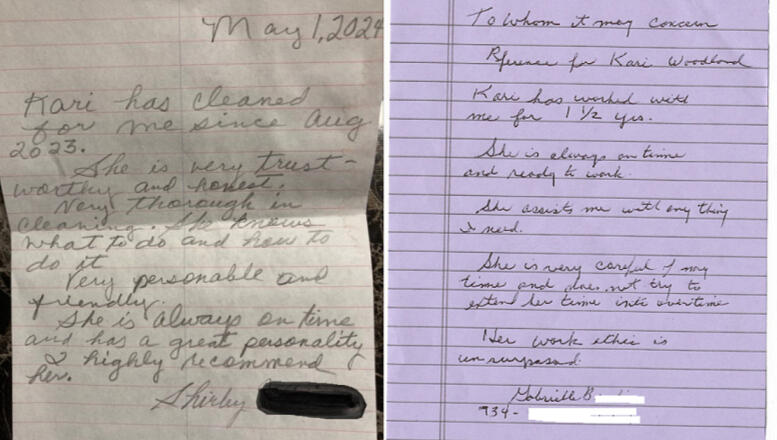 May 1, 2024
Kari has cleaned
for me since Aug
2023.
She is very trust-
worthy and honest.
Very thorough in
cleaning. She knows
what to do and how to
do it
Very personable and
friendly.
She is always on time
and has a great personality
I highly recommend
her.
Shirley
To whom it may concern
Rference for Kari Woodlond
Kari has worked with
me for 1 1/2 yrs.
She is always on time
and ready to work.
She assists me with any thing
I need.
She is very careful of my
time and does not try to
extend her time into overtime
Her work ethic is
unsurpassed.
Gabrielle B
934-